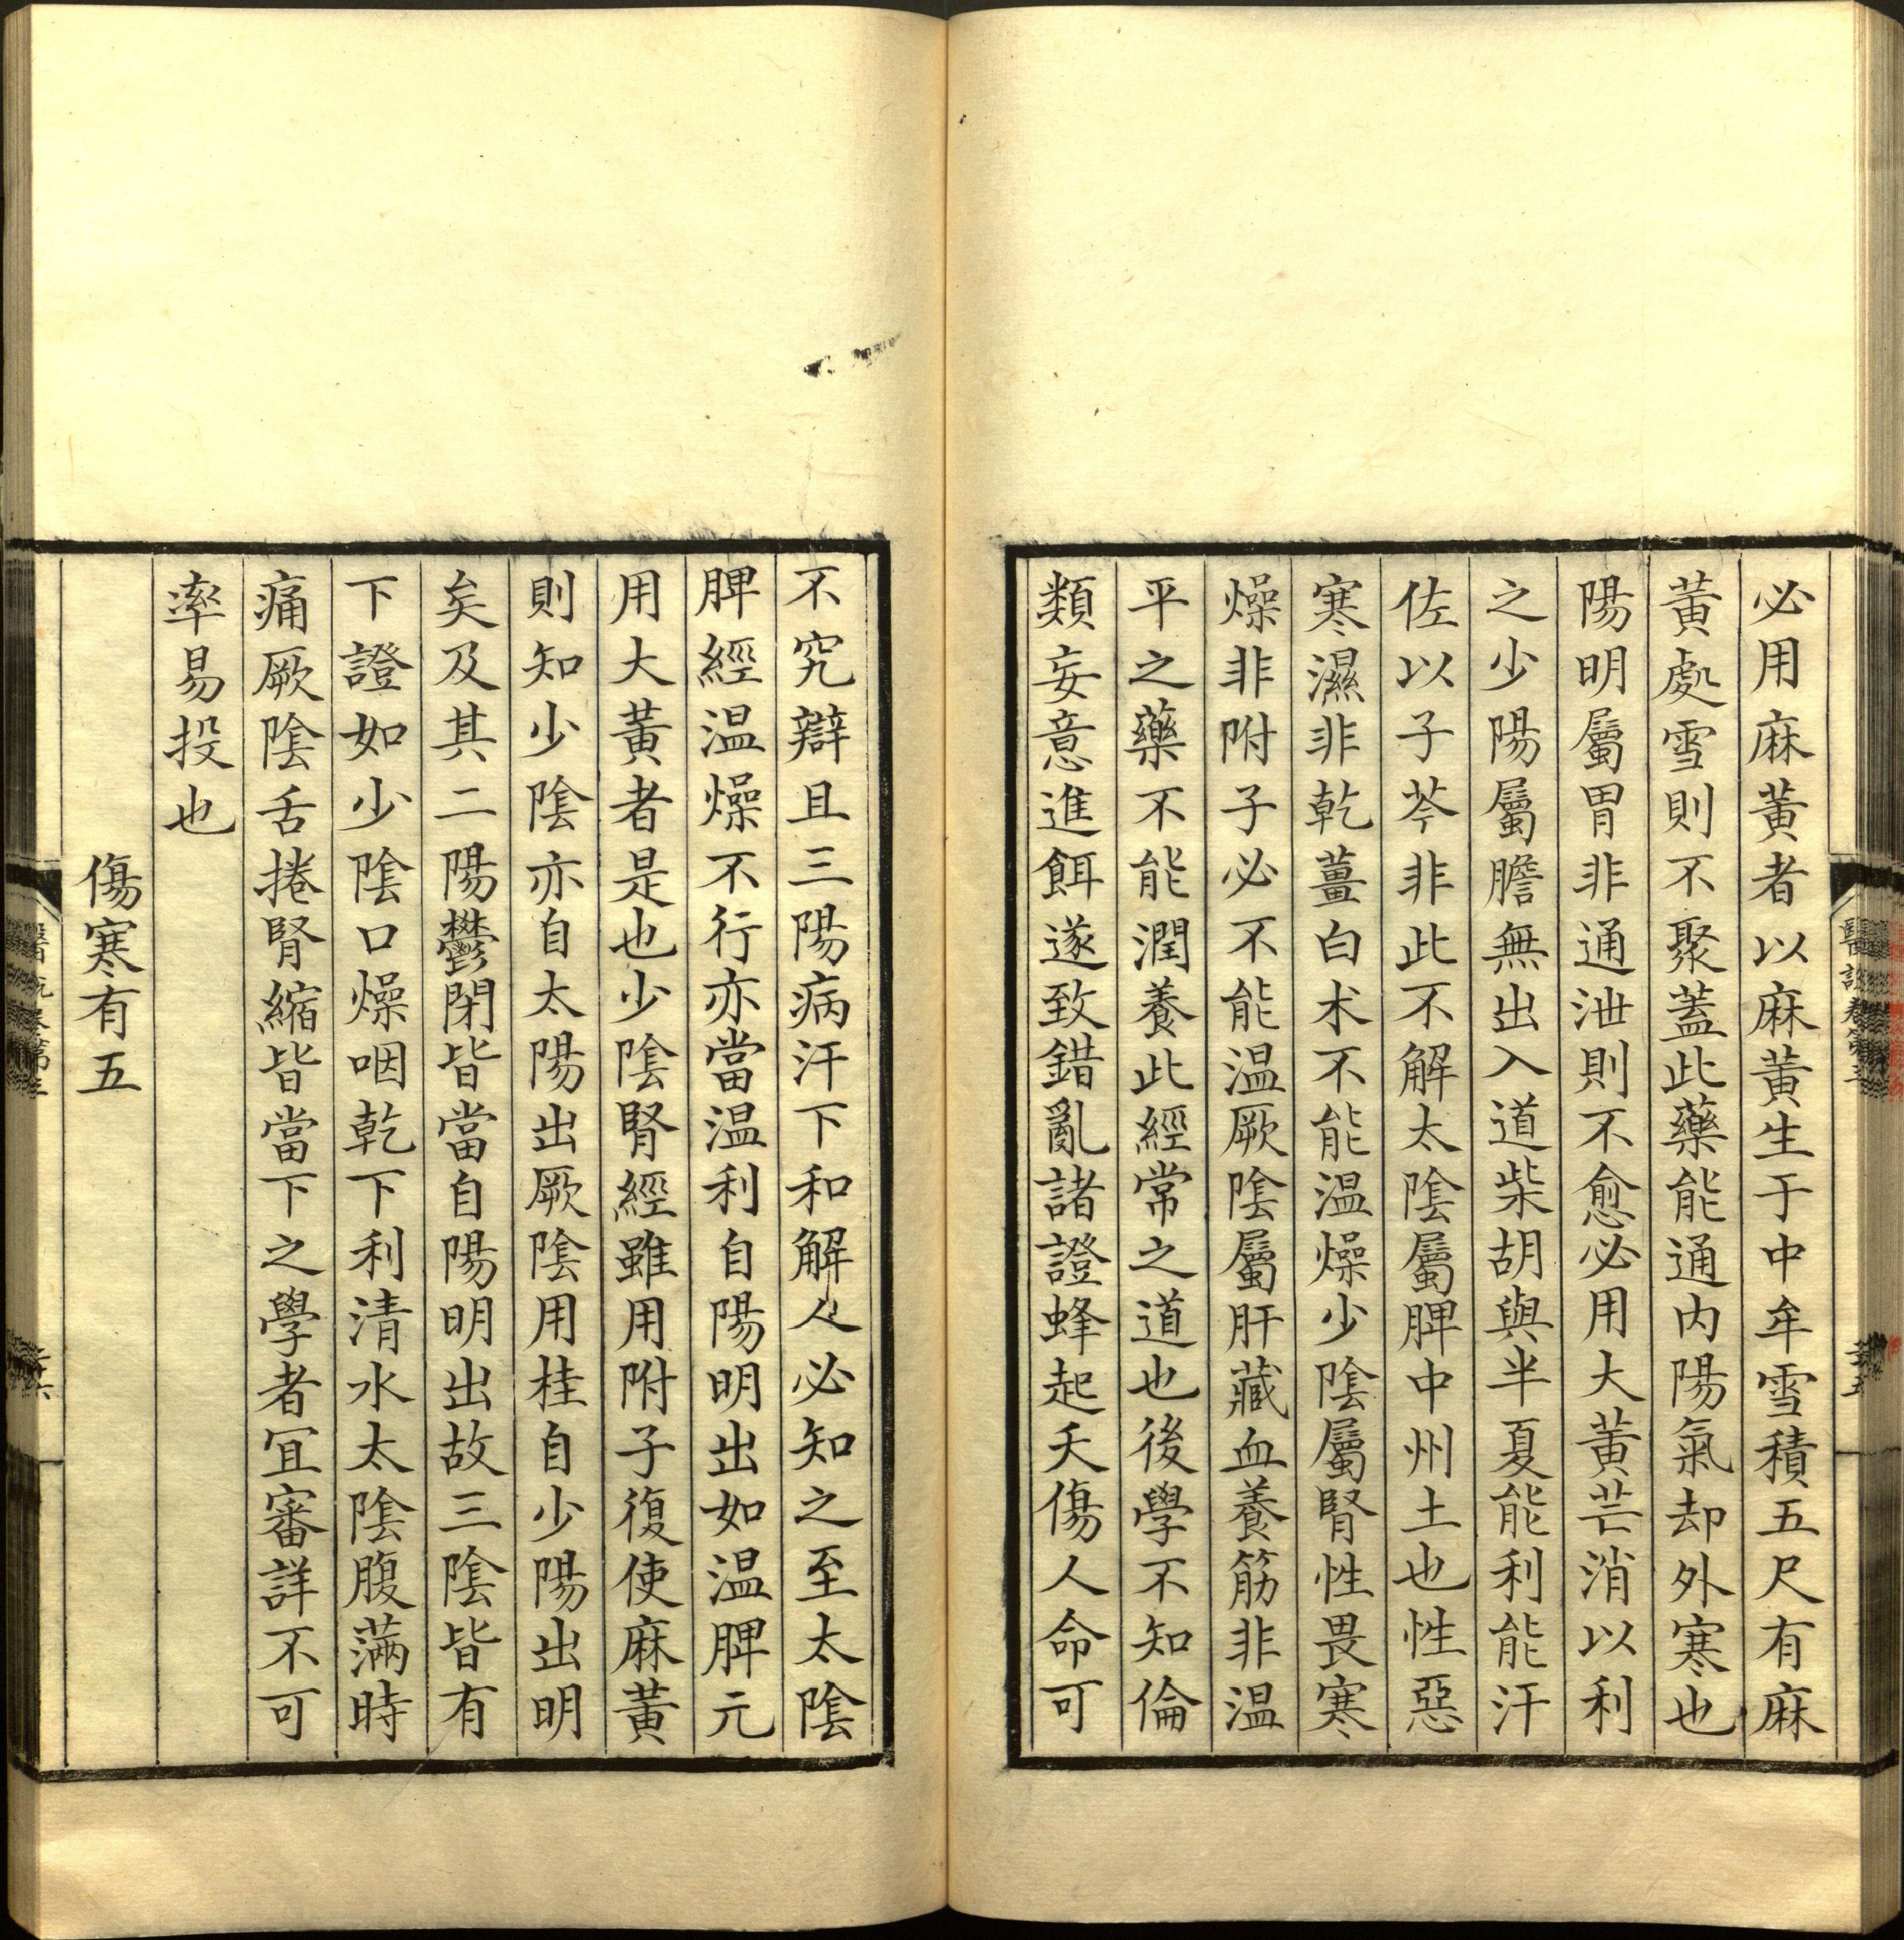 必用麻黃者以麻黃生于中牟雪積五尺有麻
黃處雪則不聚蓋此藥能通內陽氣却外寒也
陽明屬胃非通泄則不愈必用大黃芒消以利
之少陽屬膽無出入道柴胡與半夏能利能汗
佐以子芩非此不解太陰屬脾中州土也性惡
寒濕非乾薑白朮不能温燥少陰屬腎性畏寒
燥非附子必不能温厥陰屬肝藏血養筋非温
平之藥不能潤養此經常之道也後學不知倫
類妄意進餌遂致錯亂諸證蜂起夭傷人命可
不究辯且三陽病汗下和解人必知之至太陰
脾經温燥不行亦當温利自陽明出如温脾元
用大黃者是也少陰腎經雖用附子復使麻黃
則知少陰亦自太陽出厥陰用桂自少陽出明
矣及其二陽鬱閉皆當自陽明出故三陰皆有
下證如少陰口燥咽乾下利清水太陰腹滿時
痛厥陰舌捲腎縮皆當下之學者冝審詳不可
率易投也
傷寒有五